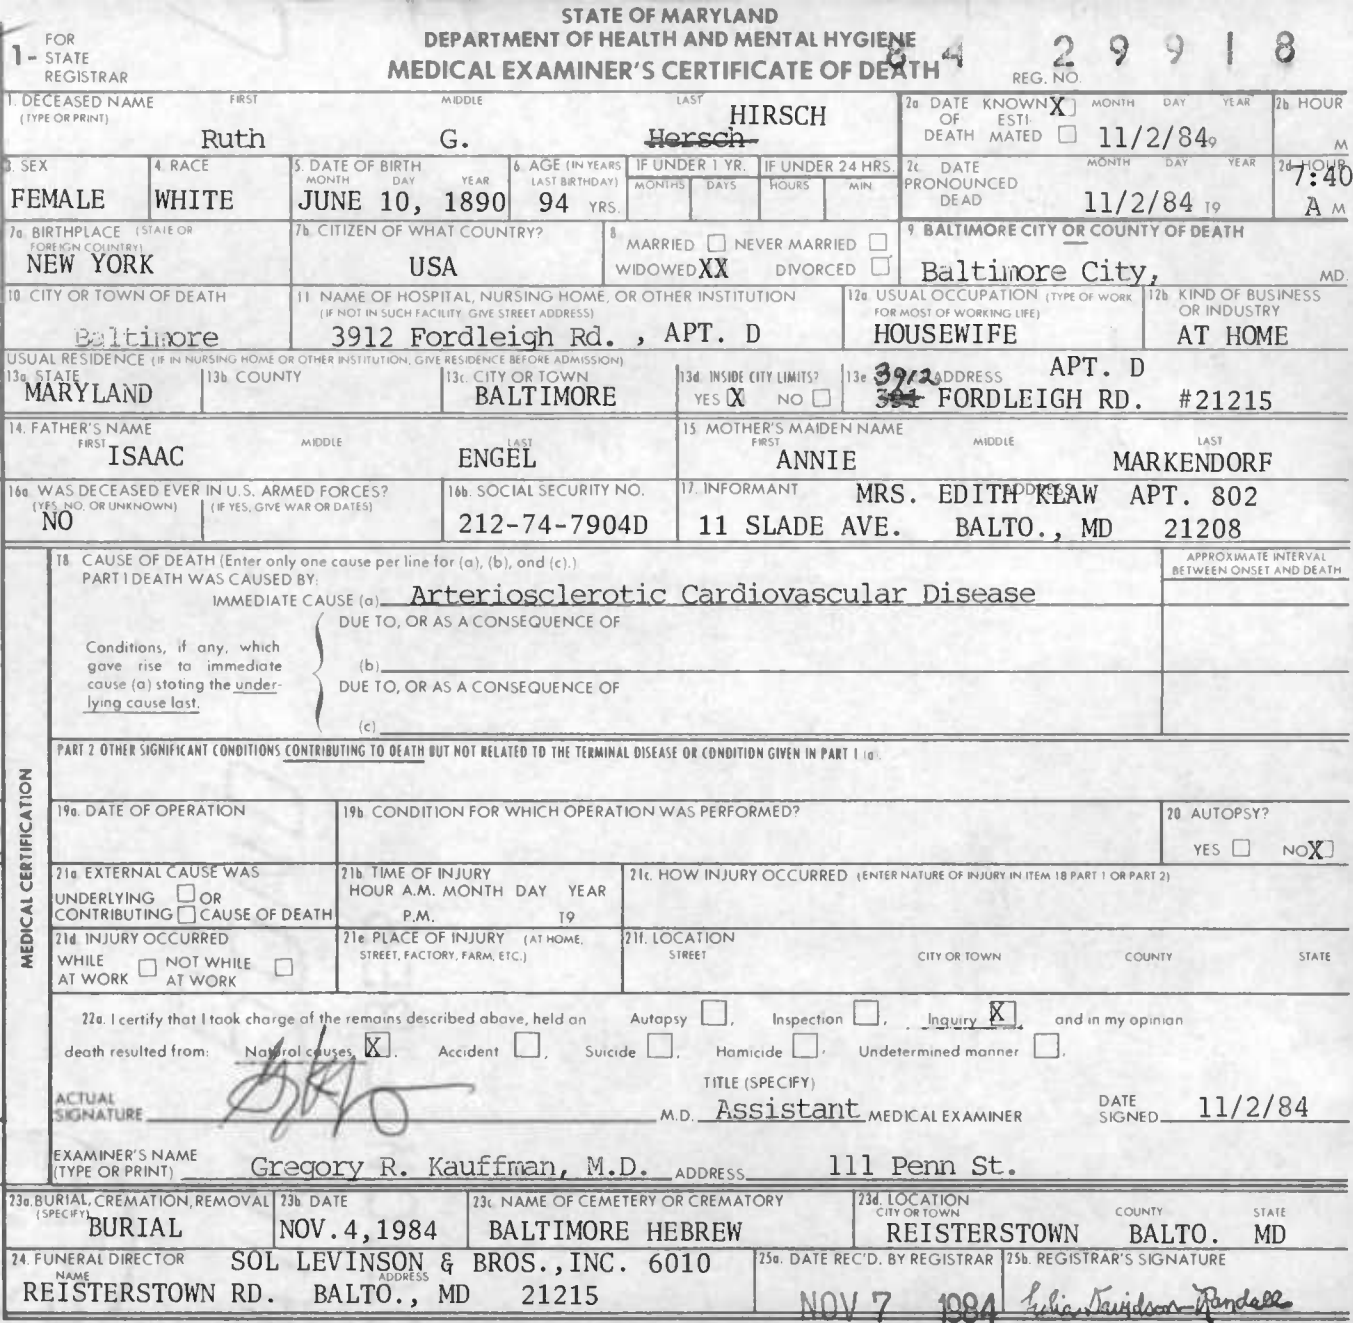 STATE OF MARYLAND
DEPARTMENT OF HEALTH AND MENTAL HYGIENE
MEDICAL EXAMINER'S CERTIFICATE OF DEATH
1- FOR STATE REGISTRAR
84 29918
REG. NO.
1. DECEASED NAME (TYPE OR PRINT) FIRST MIDDLE LAST
Ruth G. Hersch HIRSCH
2a DATE OF DEATH KNOWN X ESTIMATED MONTH DAY YEAR
11/2/84 19
2b HOUR
M
3. SEX
FEMALE
4. RACE
WHITE
5. DATE OF BIRTH
MONTH DAY YEAR
JUNE 10, 1890
6. AGE (IN YEARS LAST BIRTHDAY)
94 YRS.
IF UNDER 1 YR.
MONTHS DAYS
IF UNDER 24 HRS.
HOURS MIN
2c DATE PRONOUNCED DEAD MONTH DAY YEAR
11/2/84 19
2d HOUR
7:40
A M
7a BIRTHPLACE (STATE OR FOREIGN COUNTRY)
NEW YORK
7b CITIZEN OF WHAT COUNTRY?
USA
8 MARRIED NEVER MARRIED
WIDOWED XX DIVORCED
9 BALTIMORE CITY OR COUNTY OF DEATH
Baltimore City, MD.
10 CITY OR TOWN OF DEATH
Baltimore
11 NAME OF HOSPITAL, NURSING HOME, OR OTHER INSTITUTION
(IF NOT IN SUCH FACILITY GIVE STREET ADDRESS)
3912 Fordleigh Rd. , APT. D
12a USUAL OCCUPATION (TYPE OF WORK FOR MOST OF WORKING LIFE)
HOUSEWIFE
12b KIND OF BUSINESS OR INDUSTRY
AT HOME
USUAL RESIDENCE (IF IN NURSING HOME OR OTHER INSTITUTION, GIVE RESIDENCE BEFORE ADMISSION)
13a. STATE
MARYLAND
13b COUNTY
13c. CITY OR TOWN
BALTIMORE
13d. INSIDE CITY LIMITS?
YES X NO
13e ADDRESS
3912 APT. D
FORDLEIGH RD. #21215
14. FATHER'S NAME
FIRST MIDDLE LAST
ISAAC ENGEL
15 MOTHER'S MAIDEN NAME
FIRST MIDDLE LAST
ANNIE MARKENDORF
16a WAS DECEASED EVER IN U.S. ARMED FORCES?
(YES, NO, OR UNKNOWN) (IF YES, GIVE WAR OR DATES)
NO
16b. SOCIAL SECURITY NO.
212-74-7904D
17. INFORMANT ADDRESS
MRS. EDITH KLAW APT. 802
11 SLADE AVE. BALTO., MD 21208
MEDICAL CERTIFICATION
18 CAUSE OF DEATH (Enter only one cause per line for (a), (b), and (c).)
PART I DEATH WAS CAUSED BY:
IMMEDIATE CAUSE (a) Arteriosclerotic Cardiovascular Disease
APPROXIMATE INTERVAL BETWEEN ONSET AND DEATH
DUE TO, OR AS A CONSEQUENCE OF
Conditions, if any, which gave rise to immediate cause (a) stating the underlying cause last.
(b)
DUE TO, OR AS A CONSEQUENCE OF
(c)
PART 2 OTHER SIGNIFICANT CONDITIONS CONTRIBUTING TO DEATH BUT NOT RELATED TO THE TERMINAL DISEASE OR CONDITION GIVEN IN PART 1 (a).
19a. DATE OF OPERATION
19b CONDITION FOR WHICH OPERATION WAS PERFORMED?
20 AUTOPSY?
YES NO X
21a EXTERNAL CAUSE WAS
UNDERLYING OR
CONTRIBUTING CAUSE OF DEATH
21b TIME OF INJURY
HOUR A.M. MONTH DAY YEAR
P.M. 19
21c. HOW INJURY OCCURRED (ENTER NATURE OF INJURY IN ITEM 18 PART 1 OR PART 2)
21d INJURY OCCURRED
WHILE AT WORK NOT WHILE AT WORK
21e PLACE OF INJURY (AT HOME, STREET, FACTORY, FARM, ETC.)
21f. LOCATION
STREET CITY OR TOWN COUNTY STATE
22a. I certify that I took charge of the remains described above, held an Autopsy , Inspection , Inquiry X and in my opinion
death resulted from: Natural causes X , Accident , Suicide , Homicide , Undetermined manner .
ACTUAL SIGNATURE M.D.
TITLE (SPECIFY)
Assistant MEDICAL EXAMINER
DATE SIGNED 11/2/84
EXAMINER'S NAME (TYPE OR PRINT) Gregory R. Kauffman, M.D. ADDRESS 111 Penn St.
23a. BURIAL, CREMATION, REMOVAL (SPECIFY)
BURIAL
23b DATE
NOV.4,1984
23c NAME OF CEMETERY OR CREMATORY
BALTIMORE HEBREW
23d. LOCATION
CITY OR TOWN COUNTY STATE
REISTERSTOWN BALTO. MD
24. FUNERAL DIRECTOR
NAME ADDRESS
SOL LEVINSON & BROS.,INC. 6010
REISTERSTOWN RD. BALTO., MD 21215
25a. DATE REC'D. BY REGISTRAR
NOV 7 1984
25b. REGISTRAR'S SIGNATURE
Julia Davidson-Randall